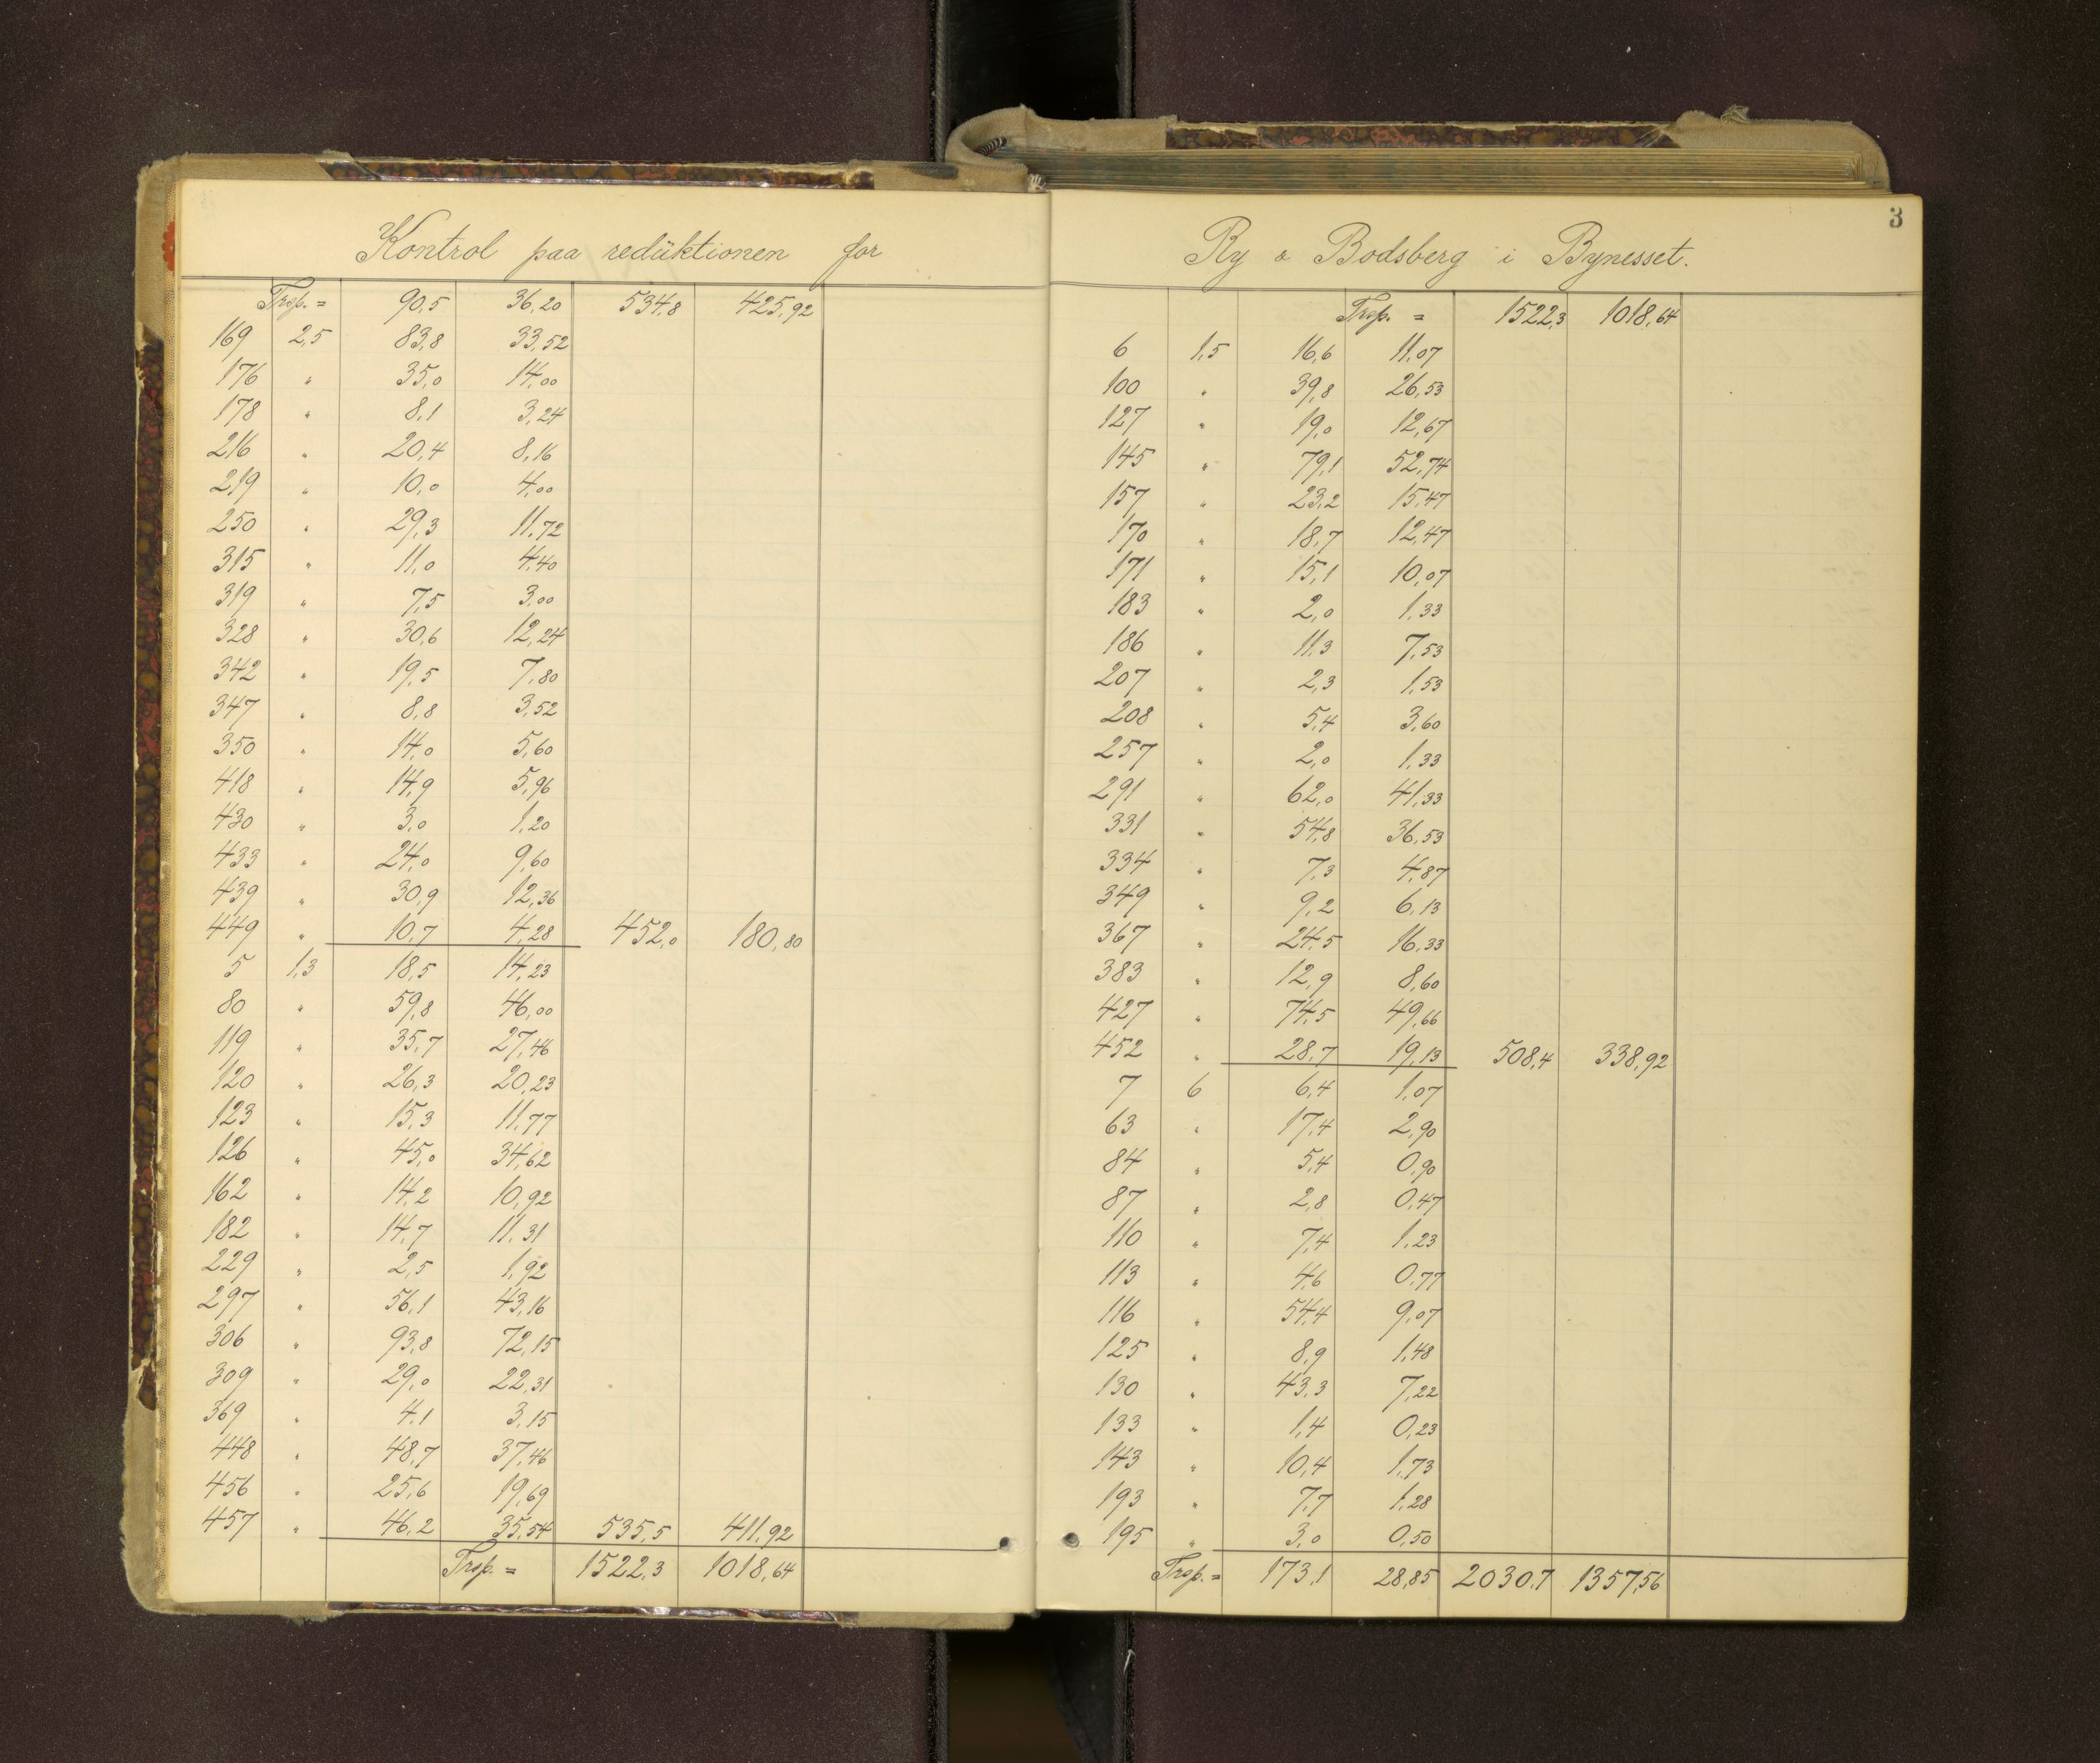 Kontrol paa redüktionen for
Trsp. = 90,5 36,20 534,8 425,92
169 2,5 83,8 33,52
176 " 35,0 14,00
178 " 8,1 3,24
216 " 20,4 8,16
219 " 10,0 4,00
250 " 29,3 11,72
315 " 11,0 4,40
319 " 7,5 3,00
328 " 30,6 12,24
342 " 19,5 7,80
347 " 8,8 3,52
350 " 14,0 5,60
418 " 14,9 5,96
430 " 3,0 1,20
433 " 24,0 9,60
439 " 30,9 12,36
449 " 10,7 4,28 452,0 180,80
5 1,3 18,5 14,23
80 " 59,8 46,00
119 " 35,7 27,46
120 " 26,3 20,23
123 " 15,3 11,77
126 " 45,0 34,62
162 " 14,2 10,92
182 " 14,7 11,31
229 " 2,5 1,92
297 " 56,1 43,16
306 " 93,8 72,15
309 " 29,0 22,31
369 " 4,1 3,15
448 " 48,7 37,46
456 " 25,6 19,69
457 " 46,2 35,54 535,5 411,92
Trsp. = 1522,3 1018,64
3
Ry o Bodsberg i Bynesset.
Trsp. = 1522,3 1018,64
6 1,5 16,6 11,07
100 " 39,8 26,53
127 " 19,0 12,67
145 " 79,1 52,74
157 " 23,2 15,47
170 " 18,7 12,47
171 " 15,1 10,07
183 " 2,0 1,33
186 " 11,3 7,53
207 " 2,3 1,53
208 " 5,4 3,60
257 " 2,0 1,33
291 " 62,0 41,33
331 " 54,8 36,53
334 " 7,3 4,87
349 " 9,2 6,13
367 " 24,5 16,33
383 " 12,9 8,60
427 " 74,5 49,66
452 " 28,7 19,13 508,4 338,92
7 6 6,4 1,07
63 " 17,4 2,90
84 " 5,4 0,90
87 " 2,8 0,47
110 " 7,4 1,23
113 " 4,6 0,77
116 " 54,4 9,07
125 " 8,9 1,48
130 " 43,3 7,22
133 " 1,4 0,23
143 " 10,4 1,73
193 " 7,7 1,28
195 " 3,0 0,50
Trsp. = 173,1 28,85 2030,7 1357,56